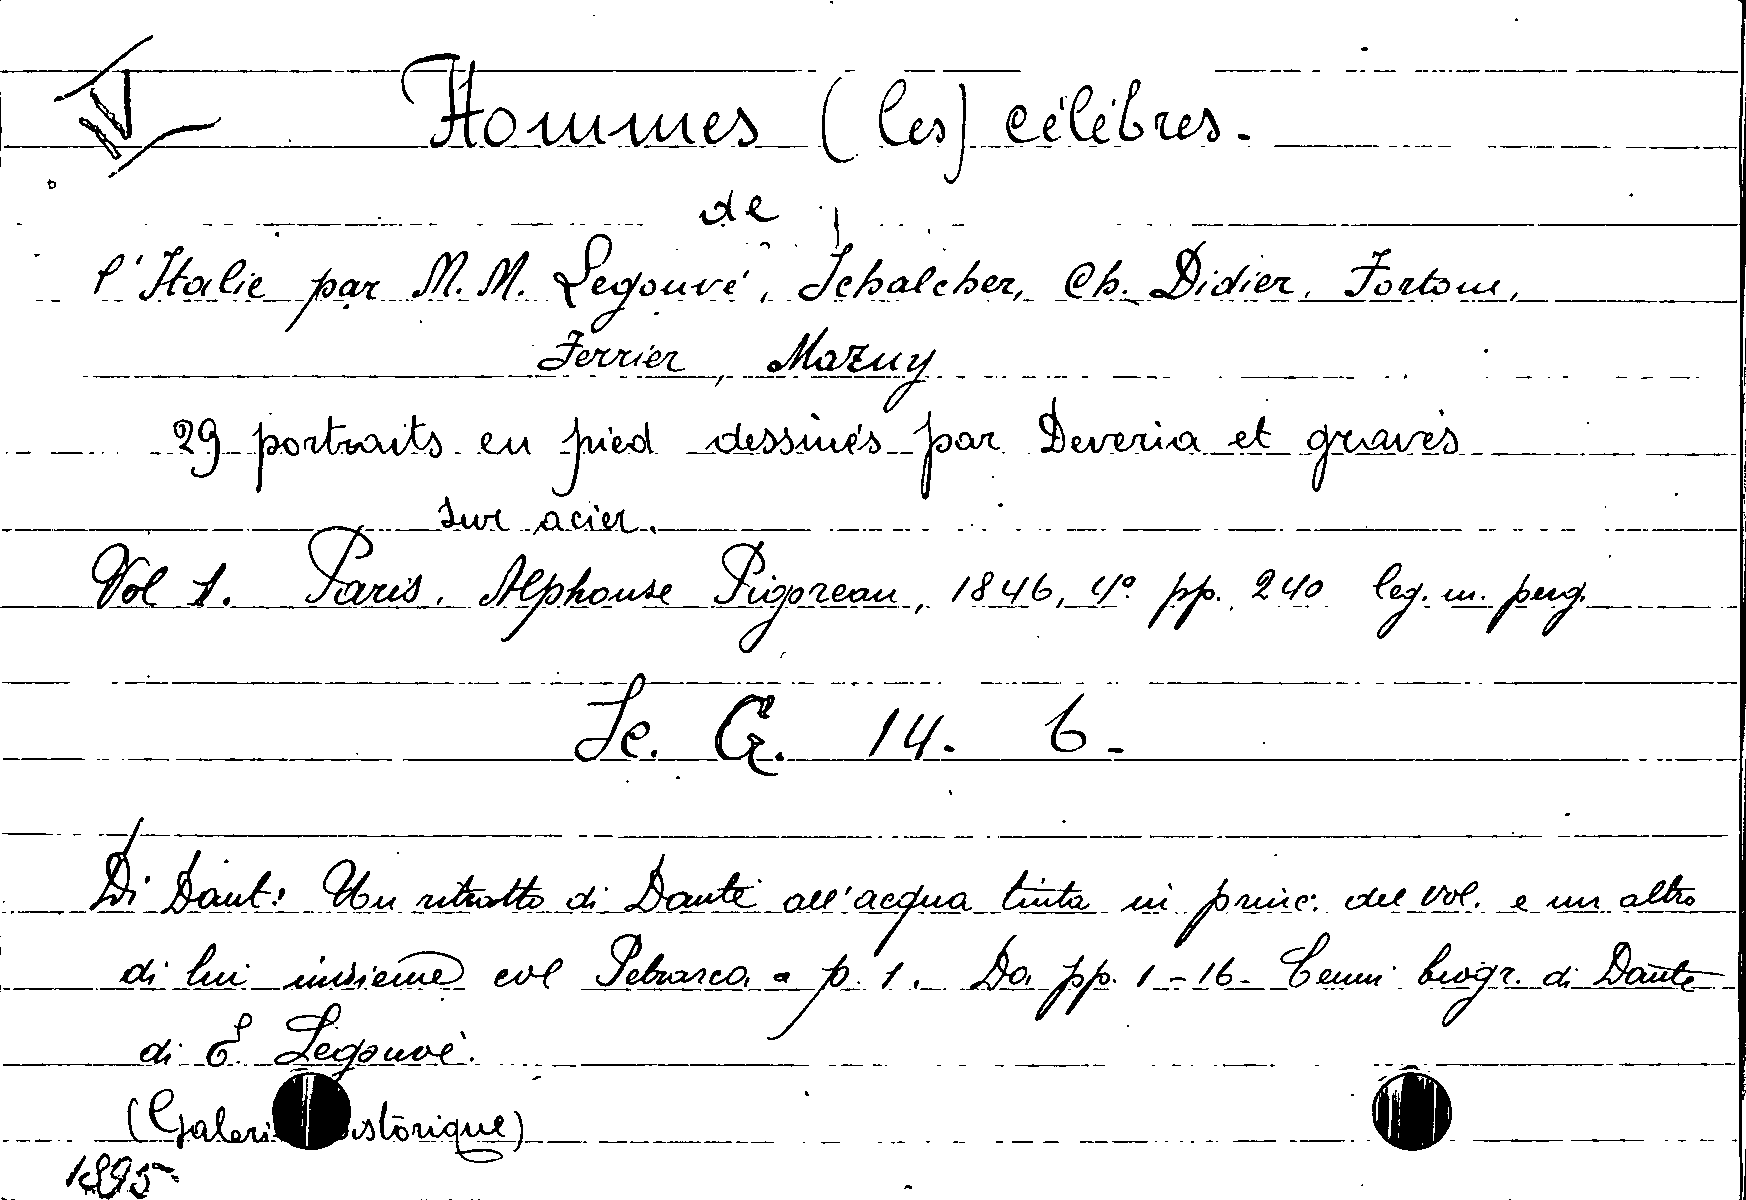 IV
Hommes (les) célèbres.
de
l'Italie par M. M. Legouvé, Schalcher, Ch. Didier, Fortoue,
Ferrier, Mazuy
29 portraits en pied dessinés par Deveria et gravès
sur acier.
Vol 1. Paris. Alphonse Pigoreau, 1846, 4º pp. 240 leg. m. perg.
Sc. G. 14. 6.
Di Dant: Un ritratto di Dante all'acqua tinta in princ. del vol. e un altro
di lui insieme col Petrarca a p. 1. Da pp. 1-16. Cenni biogr. di Dante
di E. Legouvé.
(Galeri istorique)
1895